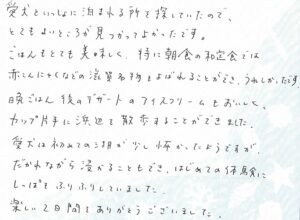 愛犬といっしょに泊まれる所を探していたので、
とてもよいところが見つかってよかったです。
ごはんもとても美味しく、特に朝食の和定食では
赤こんにゃくなどの滋賀名物をよばれることができ、うれしかったです。
晩ごはん後のデザートのアイスクリームもおいしく、
カップ片手に浜辺を散歩することができました。
愛犬は初めての湖が少し怖かったようですが、
だかれながら浸かることもでき、はじめての体験に
しっぽをふりふりしていました。
楽しい2日間をありがとうございました。